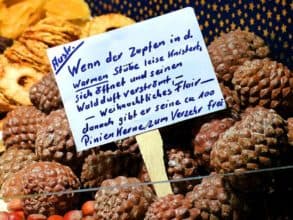 Wenn der Zapfen in d.
Warmen Stube leise knistert,
sich öffnet und seinen
Waldduft verströmt, –
– Weihnachtliches Flair –
danach gibt er seine ca 100
Pinien Kerne/zum Verzehr frei